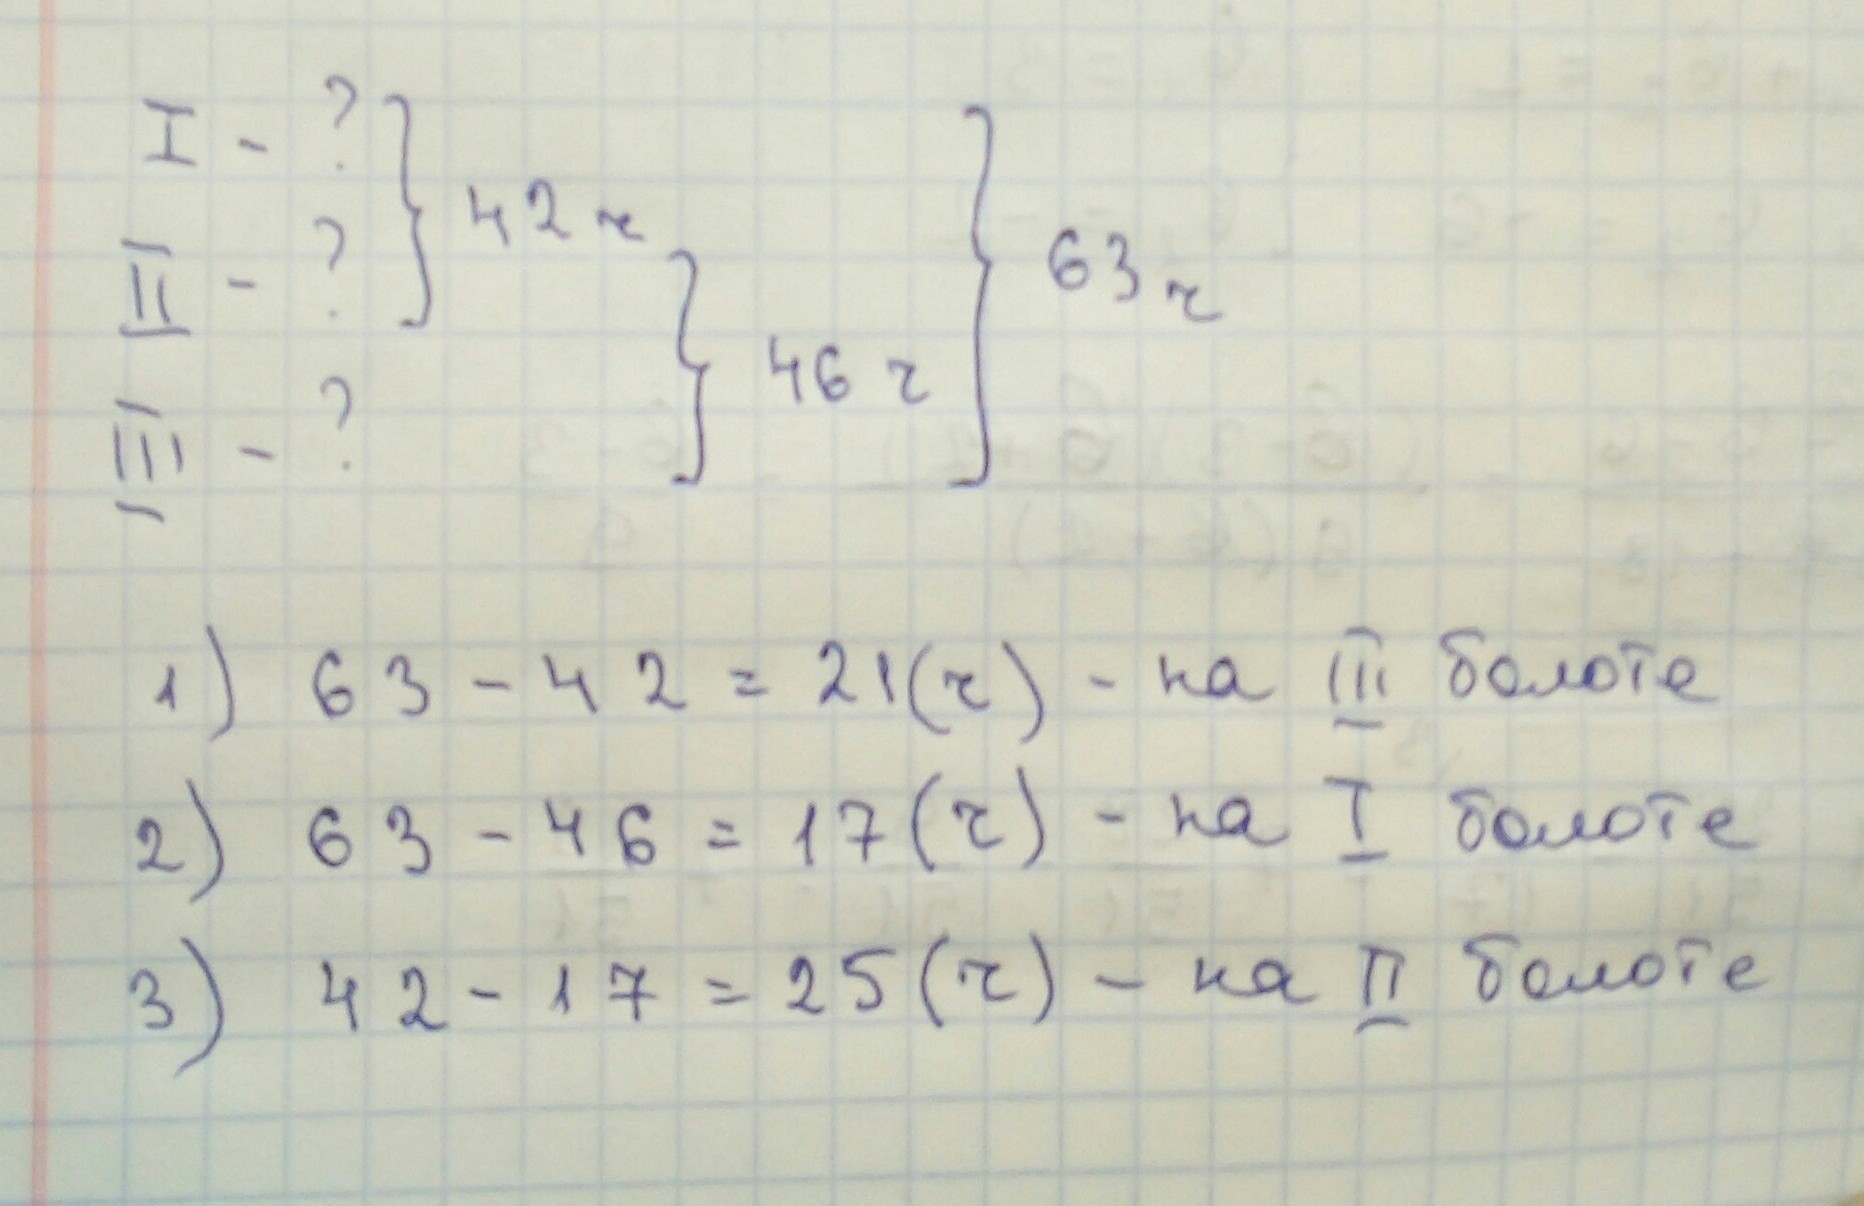 I - ?
42 ч
II - ?
63 ч
46 ч
III - ?
1) 63 - 42 = 21(ч) - на III болоте
2) 63 - 46 = 17(ч) - на I болоте
3) 42 - 17 = 25(ч) - на II болоте